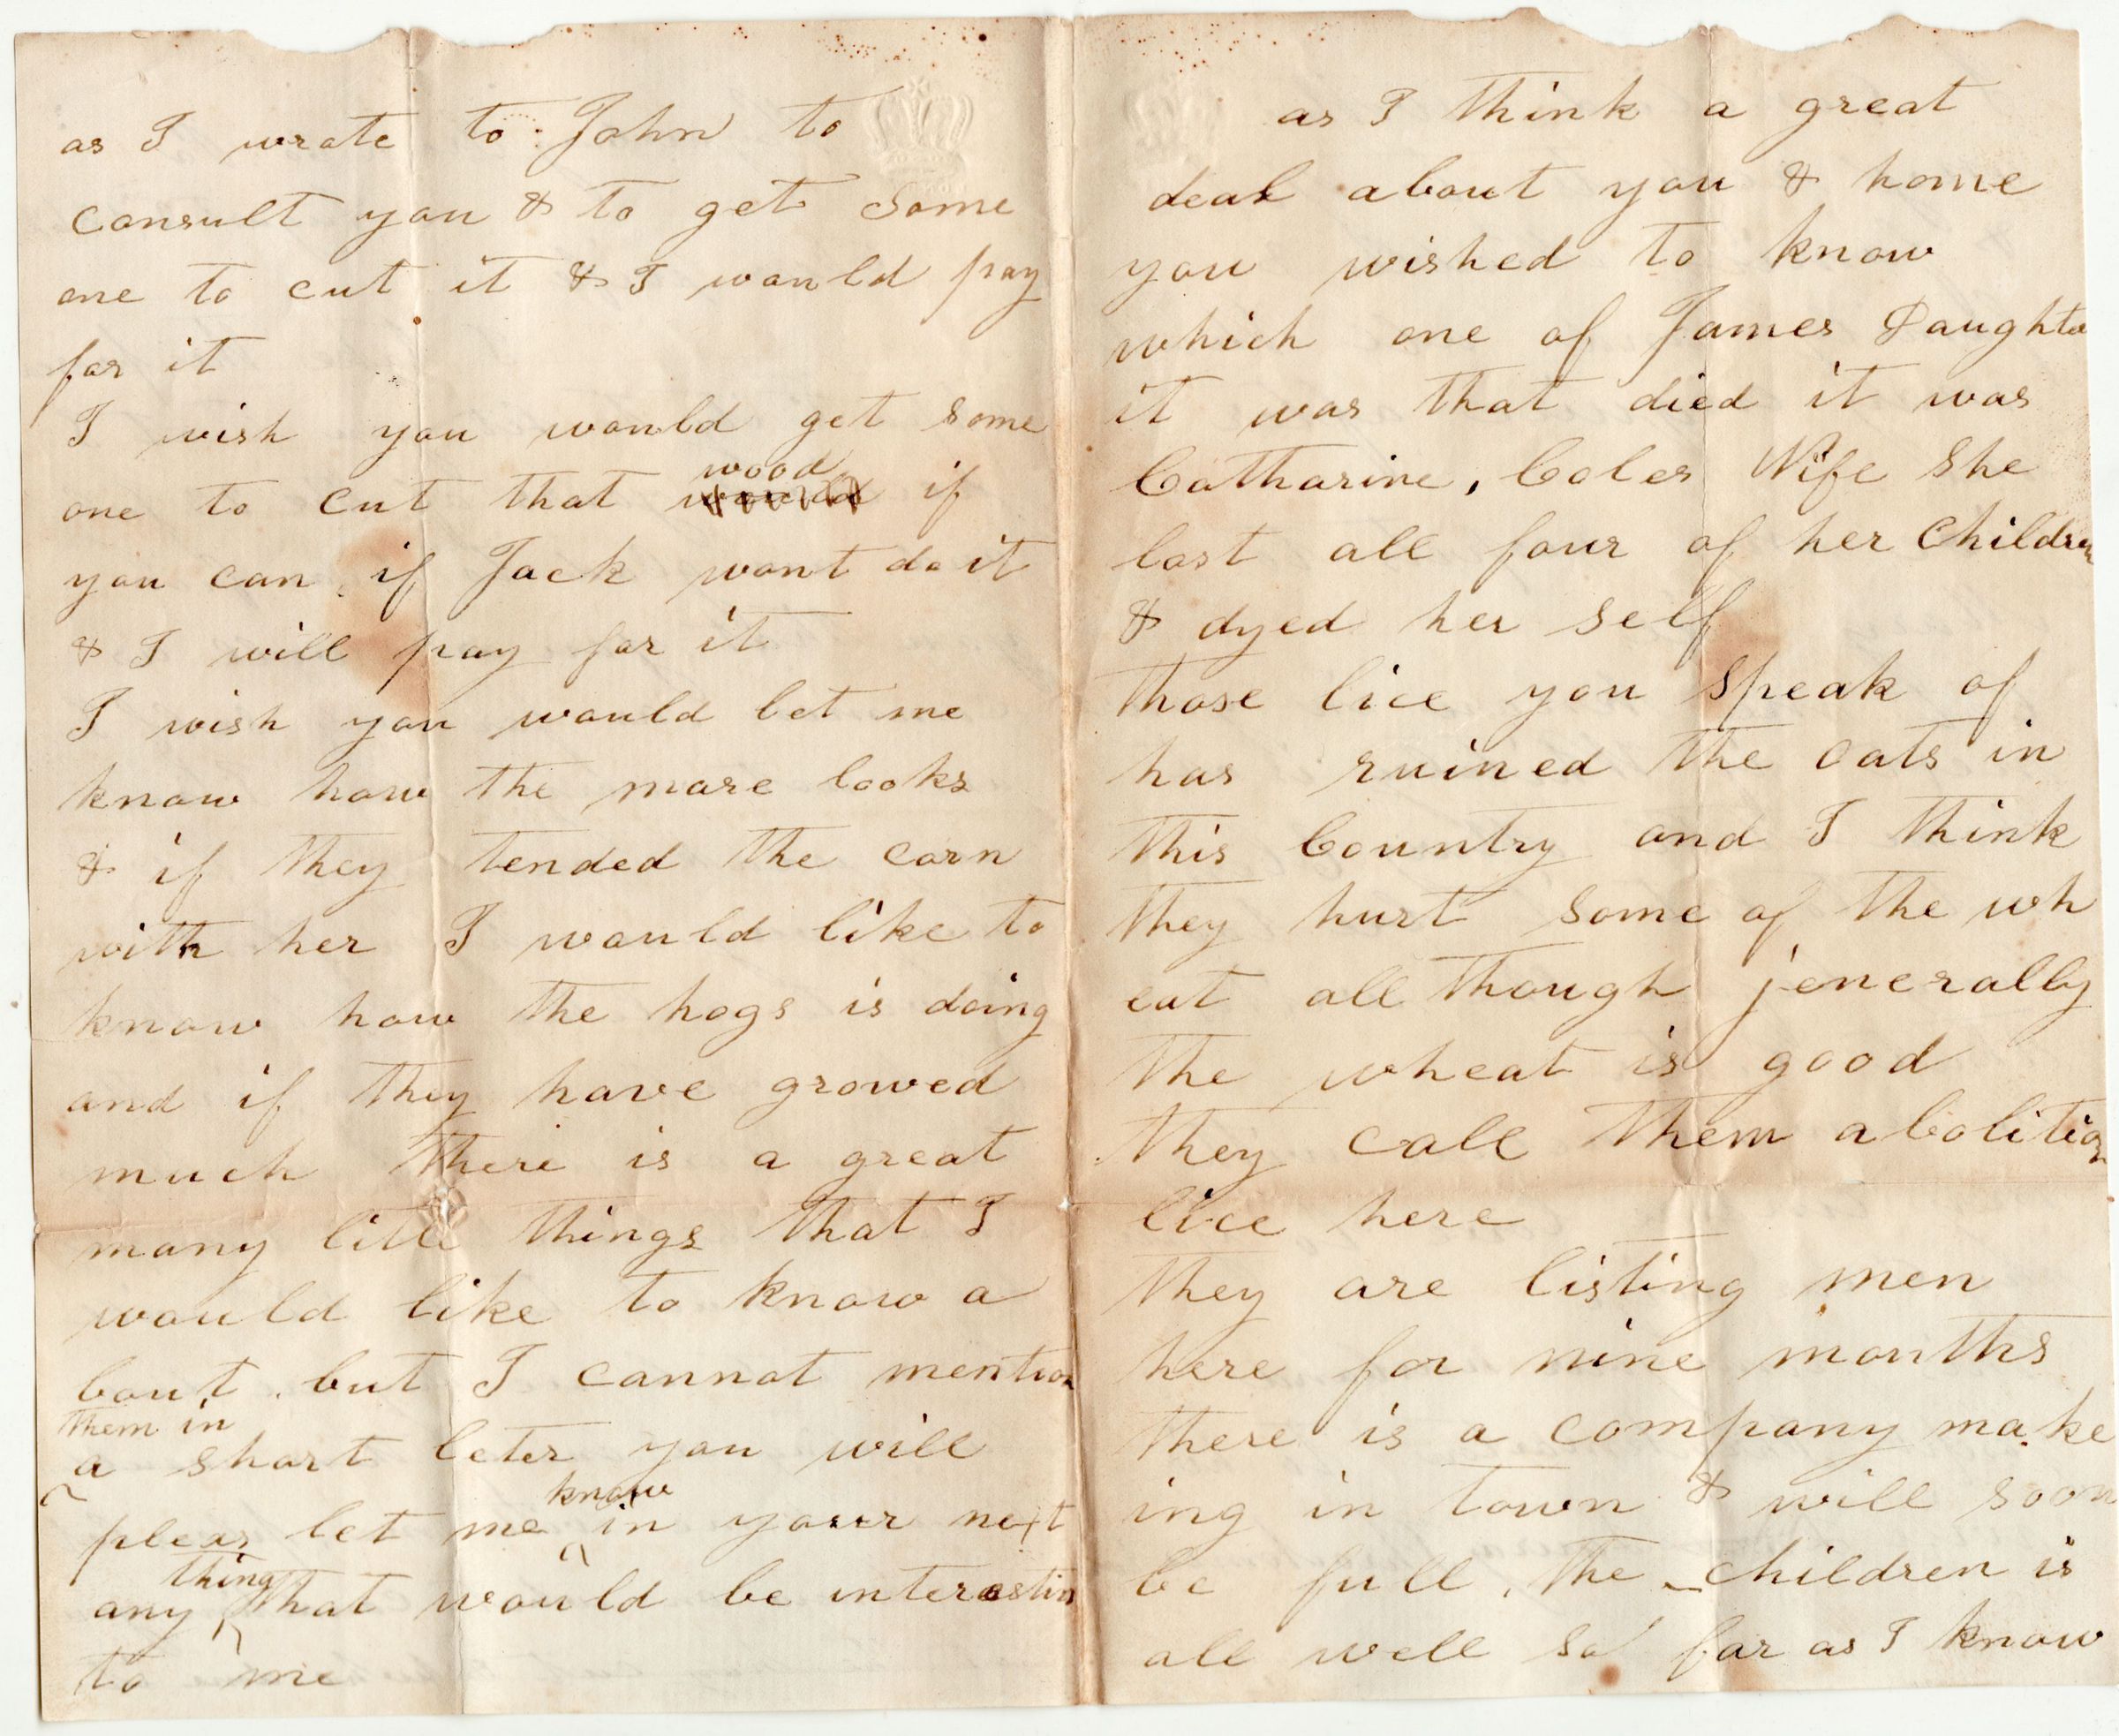 as I wrote to John to
consult you & to get some
one to cut it & I would pay
for it
I wish you would get some
one to cut that wood if
you can if Jack wont do it
& I will pay for it
I wish you would let me
know how the mare looks
& if they tended the corn
with her I would like to
know how the hogs is doing
and if they have growed
much there is a great
many litle things that I
would like to know a
bout. but I cannot mention
them in
a short leter you will
know
pleas let me in your next
thing
any that would be interestin
to me
as I think a great
deal about you & home
you wished to know
which one of James Daughter
it was that died it was
Catharine, Coles Wife She
lost all four of her Children
& dyed her self
those lice you speak of
has ruined the oats in
this Country and I think
they hurt some of the wh
eat all though jenerally
the wheat is good
they call them abolition
lice here
they are listing men
here for nine months
there is a company make
ing in town & will soon
be full. the children is
all well so far as I know